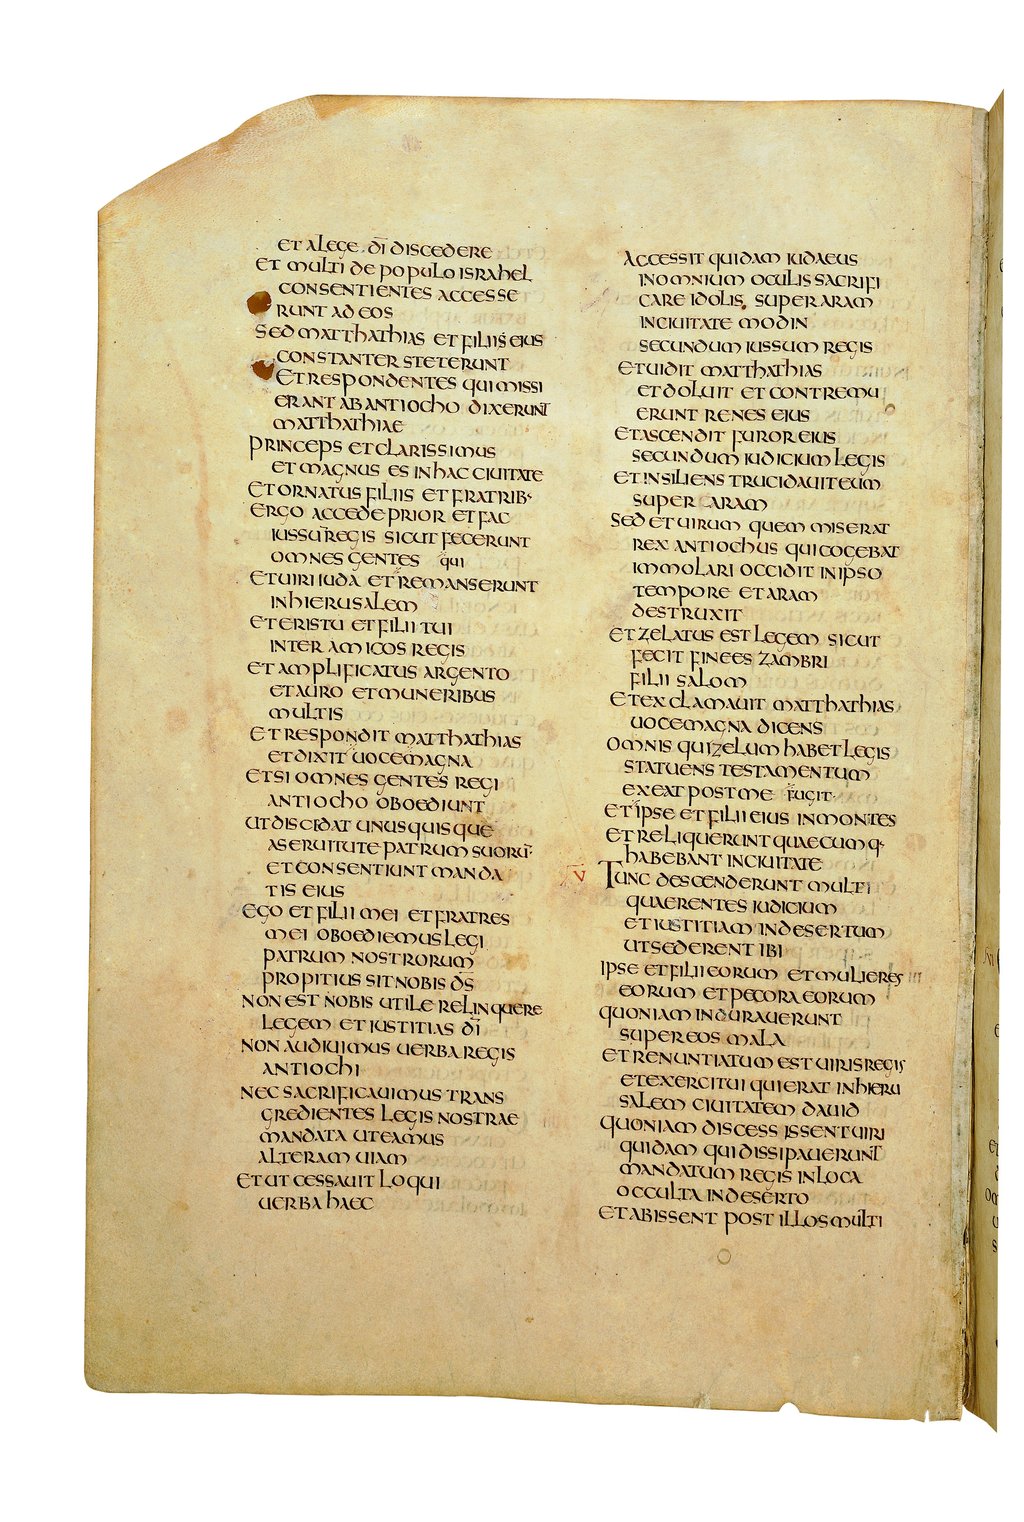 ET A LEGE · D̅I DISCEDERE
ET MULTI DE POPULO ISRAHEL
CONSENTIENTES ACCESSE
RUNT AD EOS
SED MATTHATHIAS ET FILII EIUS
CONSTANTER STETERUNT
ET RESPONDENTES QUI MISSI
ERANT AB ANTIOCHO DIXERUNT
MATTHATHIAE
PRINCEPS ET CLARISSIMUS
ET MAGNUS ES IN HAC CIUITATE
ET ORNATUS FILIIS ET FRATRIB·
ERGO ACCEDE PRIOR ET FAC
IUSSU̅ REGIS SICUT FECERUNT
OMNES GENTES qui
ET UIRI IUDA ET REMANSERUNT
IN HIERUSALEM
ET ERIS TU ET FILII TUI
INTER AMICOS REGIS
ET AMPLIFICATUS ARGENTO
ET AURO ET MUNERIBUS
MULTIS
ET RESPONDIT MATTHATHIAS
ET DIXIT UOCE MAGNA
ET SI OMNES GENTES REGI
ANTIOCHO OBOEDIUNT
UT DISCEDAT UNUSQUISQUE
A SERUITUTE PATRUM SUORU̅·
ET CONSENTIUNT MANDA
TIS EIUS
EGO ET FILII MEI ET FRATRES
MEI OBOEDIEMUS LEGI
PATRUM NOSTRORUM
PROPITIUS SIT NOBIS D̅S
NON EST NOBIS UTILE RELINQUERE
LEGEM ET IUSTITIAS D̅I
NON AUDIUIMUS UERBA REGIS
ANTIOCHI
NEC SACRIFICAUIMUS TRANS
GREDIENTES LEGIS NOSTRAE
MANDATA UT EAMUS
ALTERAM UIAM
ET UT CESSAUIT LOQUI
UERBA HAEC
ACCESSIT QUIDAM IUDAEUS
IN OMNIUM OCULIS SACRIFI
CARE IDOLIS SUPER ARAM
IN CIUITATE MODIN
SECUNDUM IUSSUM REGIS
ET UIDIT MATTHATHIAS
ET DOLUIT ET CONTREMU
ERUNT RENES EIUS
ET ASCENDIT FUROR EIUS
SECUNDUM IUDICIUM LEGIS
ET INSILIENS TRUCIDAUIT EUM
SUPER ARAM
SED ET UIRUM QUEM MISERAT
REX ANTIOCHUS QUI COGEBAT
IMMOLARI OCCIDIT IN IPSO
TEMPORE ET ARAM
DESTRUXIT
ET ZELATUS EST LEGEM SICUT
FECIT FINEES ZAMBRI
FILII SALOM
ET EXCLAMAUIT MATTHATHIAS
UOCE MAGNA DICENS
OMNIS QUI ZELUM HABET LEGIS
STATUENS TESTAMENTUM
EXEAT POST ME fugit·
ET IPSE ET FILII EIUS IN MONTES
ET RELIQUERUNT QUAECUMQ·
HABEBANT IN CIUITATE
V TUNC DESCENDERUNT MULTI
QUAERENTES IUDICIUM
ET IUSTITIAM IN DESERTUM
UT SEDERENT IBI
IPSE ET FILII EORUM ET MULIERES
EORUM ET PECORA EORUM
QUONIAM INDURAUERUNT
SUPER EOS MALA
ET RENUNTIATUM EST UIRIS REGIS
ET EXERCITUI QUI ERAT IN HIERU
SALEM CIUITATEM DAUID
QUONIAM DISCESSISSENT UIRI
QUIDAM QUI DISSIPAUERUNT
MANDATUM REGIS IN LOCA
OCCULTA IN DESERTO
ET ABISSENT POST ILLOS MULTI